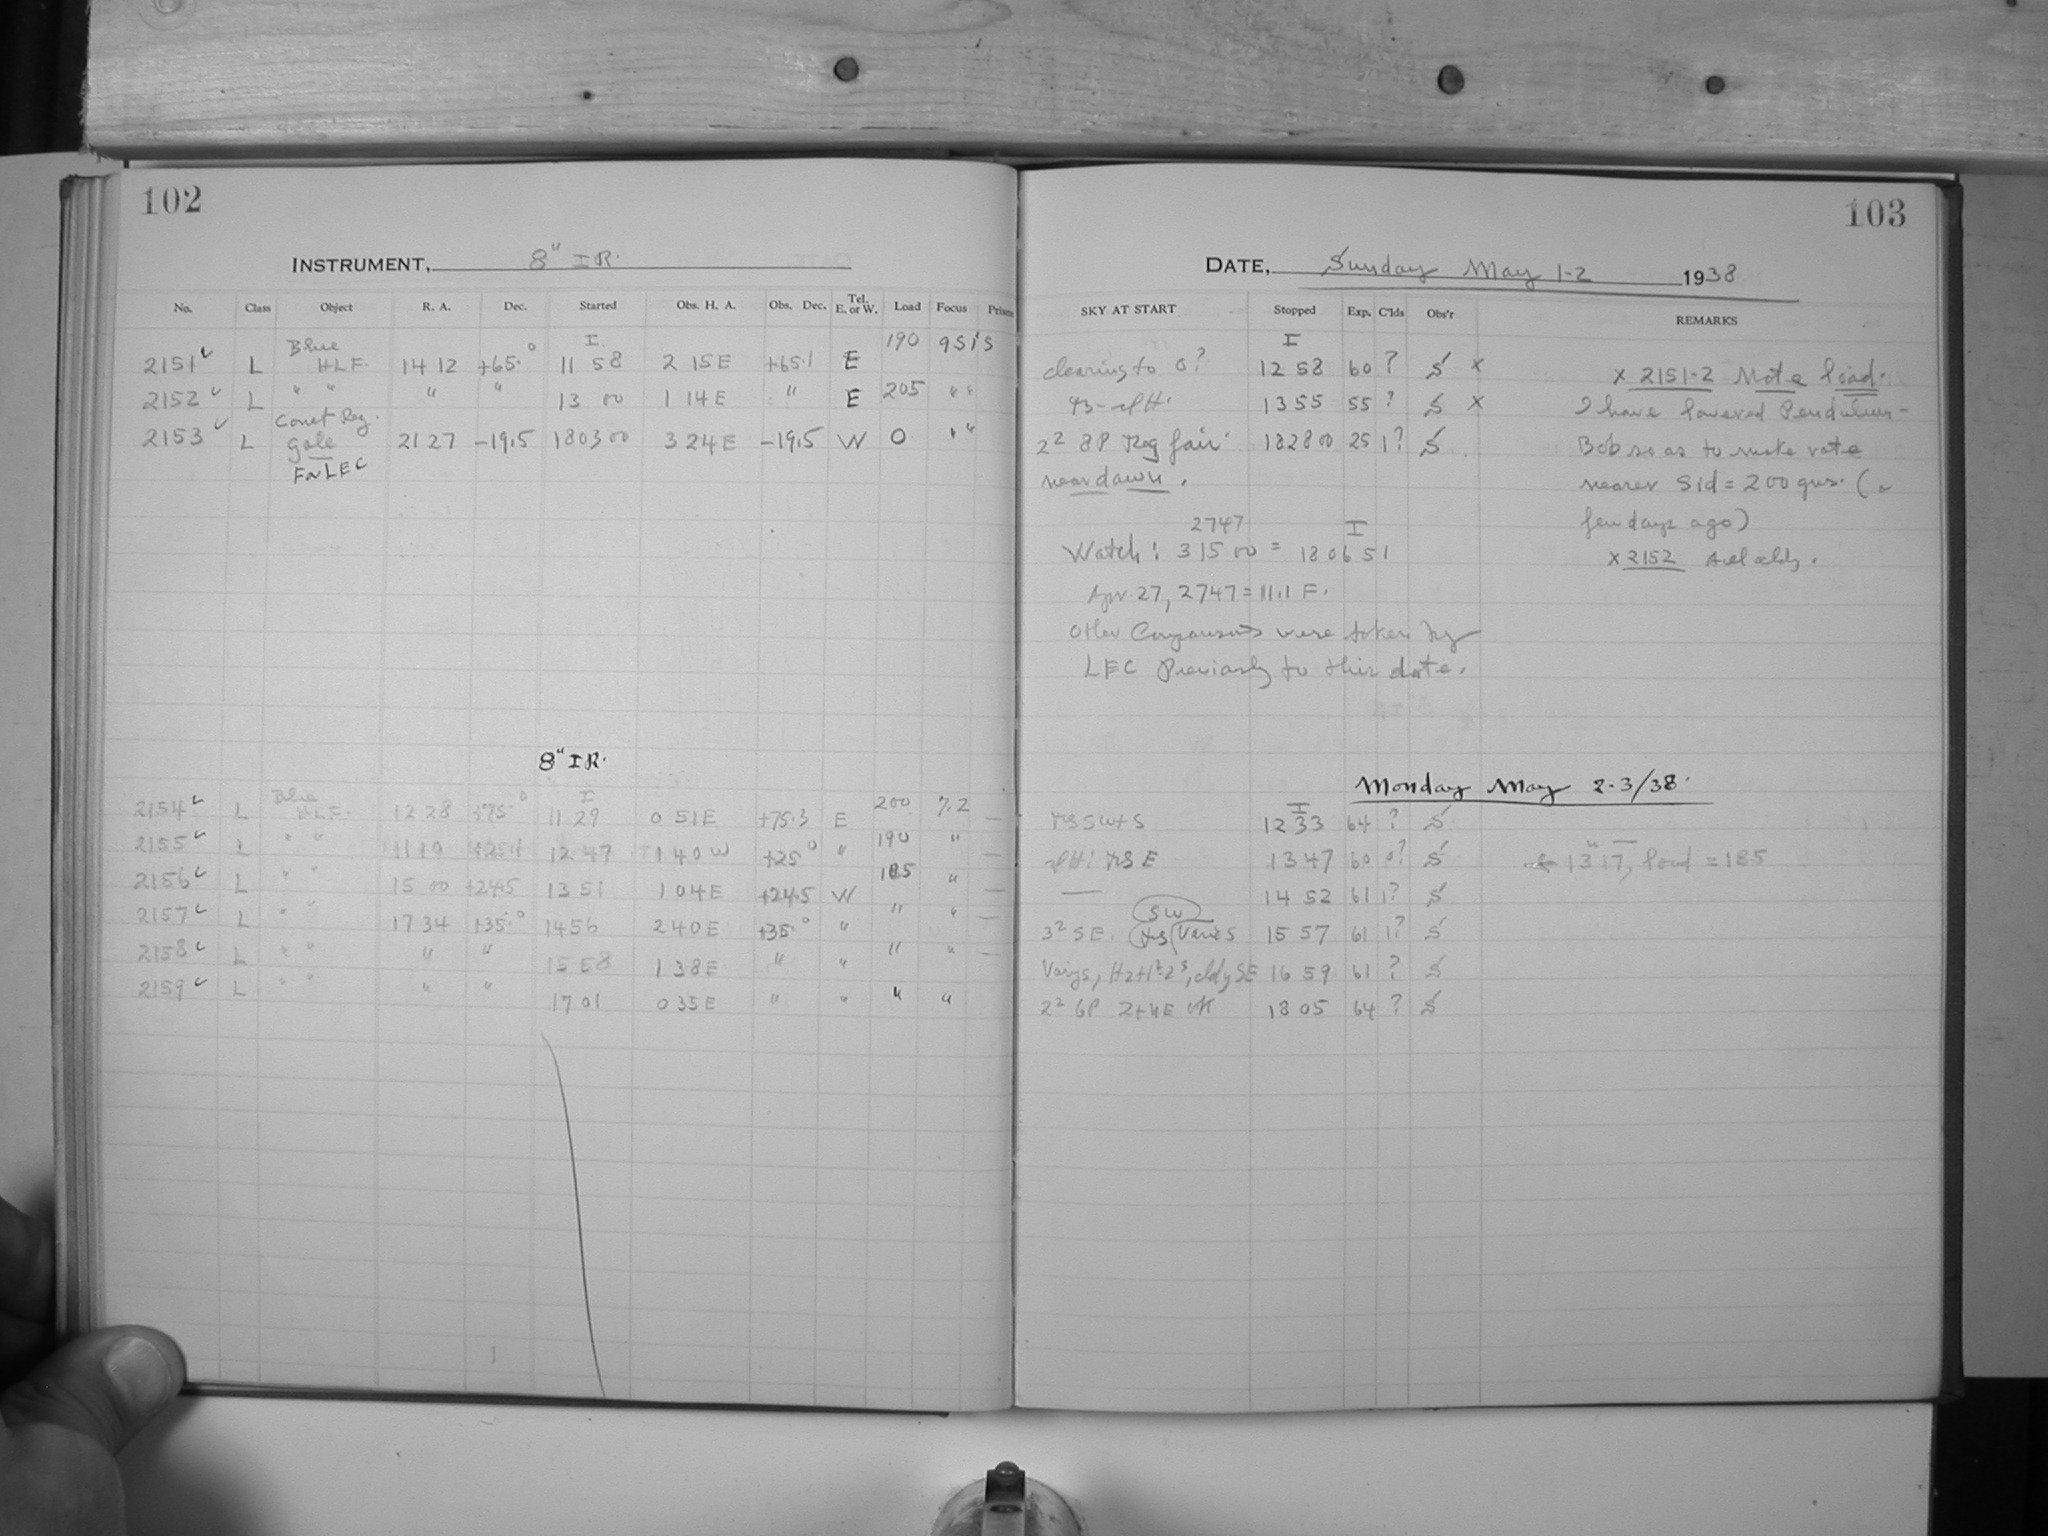 102
INSTRUMENT, 8" I R.
No. Class Object R. A. Dec. Started Obs. H. A. Obs. Dec. Tel. E. or W. Load Focus Prism
Blue I 190
2151 L H.L.F. 14 12 +65.° 11 58 2 15 E +65.1 E
2152 L " " " " 13 00 1 14 E " E 205 " "
Comet Reg.
2153 L gale 21 27 -19.5 18 03 00 3 24 E -19.5 W 0 " "
For LEC
8" I R.
Blue I
2154 L H.L.F. 12 28 +75° 11 29 0 51 E +75.3 E 200 7.2 —
2155 L " " 12 47 1 40 W +25° " 190 " —
2156 L " " 15 00 +24.5 13 51 1 04 E +24.5 W 185 " —
2157 L " " 17 34 +35.° 14 56 2 40 E +35.° " " " —
2158 L " " " " 15 58 1 38 E " " " " —
2159 L " " " " 17 01 0 35 E " " " "
103
DATE, Sunday May 1-2 1938
SKY AT START Stopped Exp. C'lds Obs'r REMARKS
I
clearing to 0? 12 58 60 ? S x
13 55 55 ? S x
2² 8P Reg fair 18 28 00 25 1? S
near dawn.
x 2151-2 Note load.
I have lowered Pendulum-
Bob so as to make rate
nearer Sid = 200 gms. (a
few days ago)
x 2152
2747 I
Watch: 3 15 00 = 18 06 51
Apr. 27, 2747 = 11.1 F.
Other Comparisons were taken by
LEC Previously to this date.
Monday May 2-3/38.
I
12 33 64 ? S
13 47 60 0? S 13 17, load = 185
— 14 52 61 1? S
SW
3² SE. Varies 15 57 61 1? S
Varys, cldy SE 16 59 61 ? S
2² 6P 18 05 64 ? S